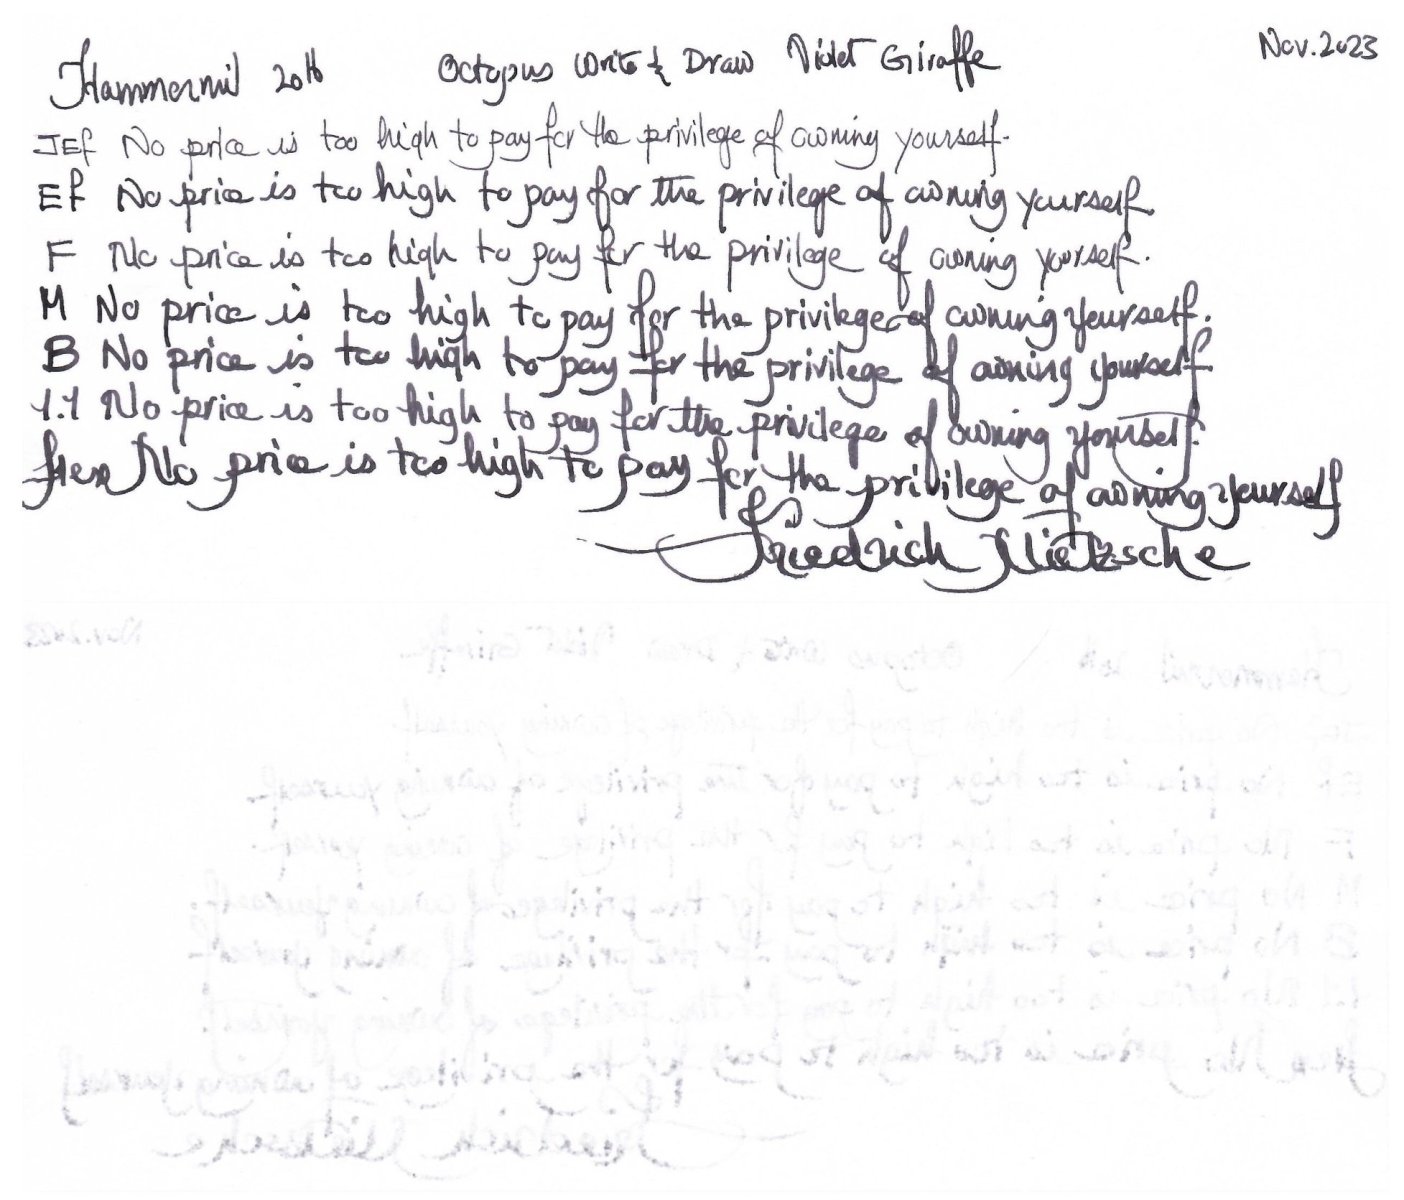 Hammermill 20lb Octopus Write & Draw Violet Giraffe Nov. 2023
JEf No price is too high to pay for the privilege of owning yourself.
Ef No price is too high to pay for the privilege of owning yourself.
F No price is too high to pay for the privilege of owning yourself.
M No price is too high to pay for the privilege of owning yourself.
B No price is too high to pay for the privilege of owning yourself.
1.1 No price is too high to pay for the privilege of owning yourself.
flex No price is too high to pay for the privilege of owning yourself
Friedrich Nietzsche